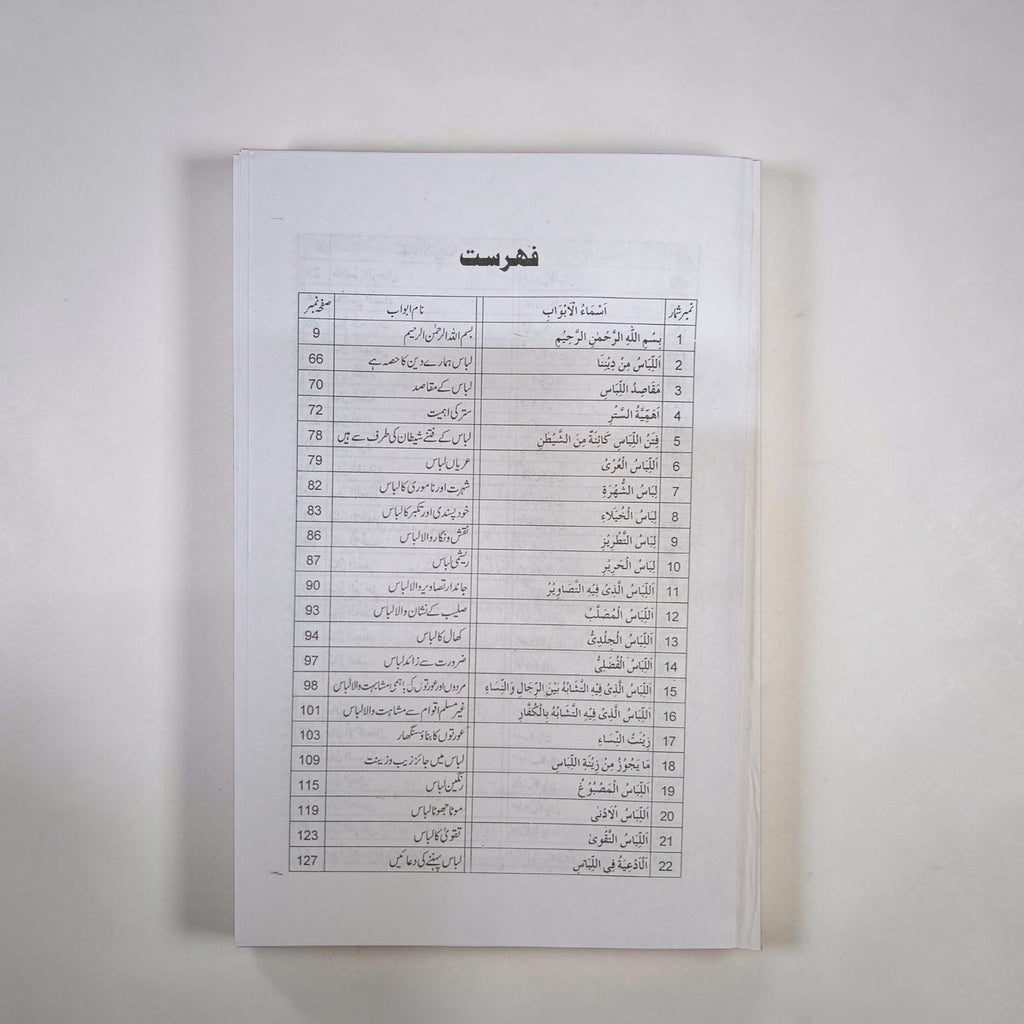 فهرست
نمبر شمار اَسْمَاءُ الْاَبْوَابِ نام ابواب صفحہ نمبر
1 بِسْمِ اللّٰهِ الرَّحْمٰنِ الرَّحِيْمِ بسم اللہ الرحمٰن الرحیم 9
2 اَللِّبَاسُ مِنْ دِيْنِنَا لباس ہمارے دین کا حصہ ہے 66
3 مَقَاصِدُ اللِّبَاسِ لباس کے مقاصد 70
4 اَهَمِّيَّةُ السَّتْرِ ستر کی اہمیت 72
5 فِتَنُ اللِّبَاسِ كَائِنَةٌ مِنَ الشَّيْطٰنِ لباس کے فتنے شیطان کی طرف سے ہیں 78
6 اَللِّبَاسُ الْعُرْىُ عریاں لباس 79
7 لِبَاسُ الشُّهْرَةِ شہرت اور ناموری کا لباس 82
8 لِبَاسُ الْخُيَلَاءِ خود پسندی اور تکبر کا لباس 83
9 لِبَاسُ التَّطْرِيْزِ نقش و نگار والا لباس 86
10 لِبَاسُ الْحَرِيْرِ ریشمی لباس 87
11 اَللِّبَاسُ الَّذِىْ فِيْهِ التَّصَاوِيْرُ جاندار تصاویر والا لباس 90
12 اَللِّبَاسُ الْمُصَلَّبُ صلیب کے نشان والا لباس 93
13 اَللِّبَاسُ الْجِلْدِىُّ کھال کا لباس 94
14 اَللِّبَاسُ الْفُضَلِىُّ ضرورت سے زائد لباس 97
15 اَللِّبَاسُ الَّذِىْ فِيْهِ التَّشَابُهُ بَيْنَ الرِّجَالِ وَالنِّسَاءِ مردوں اور عورتوں کی باہمی مشابہت والا لباس 98
16 اَللِّبَاسُ الَّذِىْ فِيْهِ التَّشَابُهُ بِالْكُفَّارِ غیر مسلم اقوام سے مشابہت والا لباس 101
17 زِيْنَتُ النِّسَاءِ عورتوں کا بناؤ سنگھار 103
18 مَا يَجُوْزُ مِنْ زِيْنَةِ اللِّبَاسِ لباس میں جائز زیب و زینت 109
19 اَللِّبَاسُ الْمَصْبُوْغُ رنگین لباس 115
20 اَللِّبَاسُ الْاَدْنٰى موٹا جھوٹا لباس 119
21 اَللِّبَاسُ التَّقْوىٰ تقویٰ کا لباس 123
22 اَلْاَدْعِيَةُ فِى اللِّبَاسِ لباس پہننے کی دعائیں 127